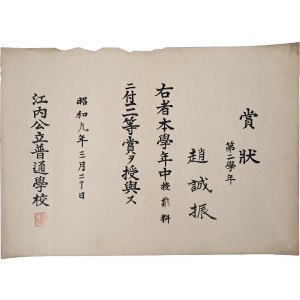 賞狀
第二學年
趙誠振
右者本學年中授業料
ニ付三等賞ヲ授與ス
昭和九年三月二十日
江內公立普通學校